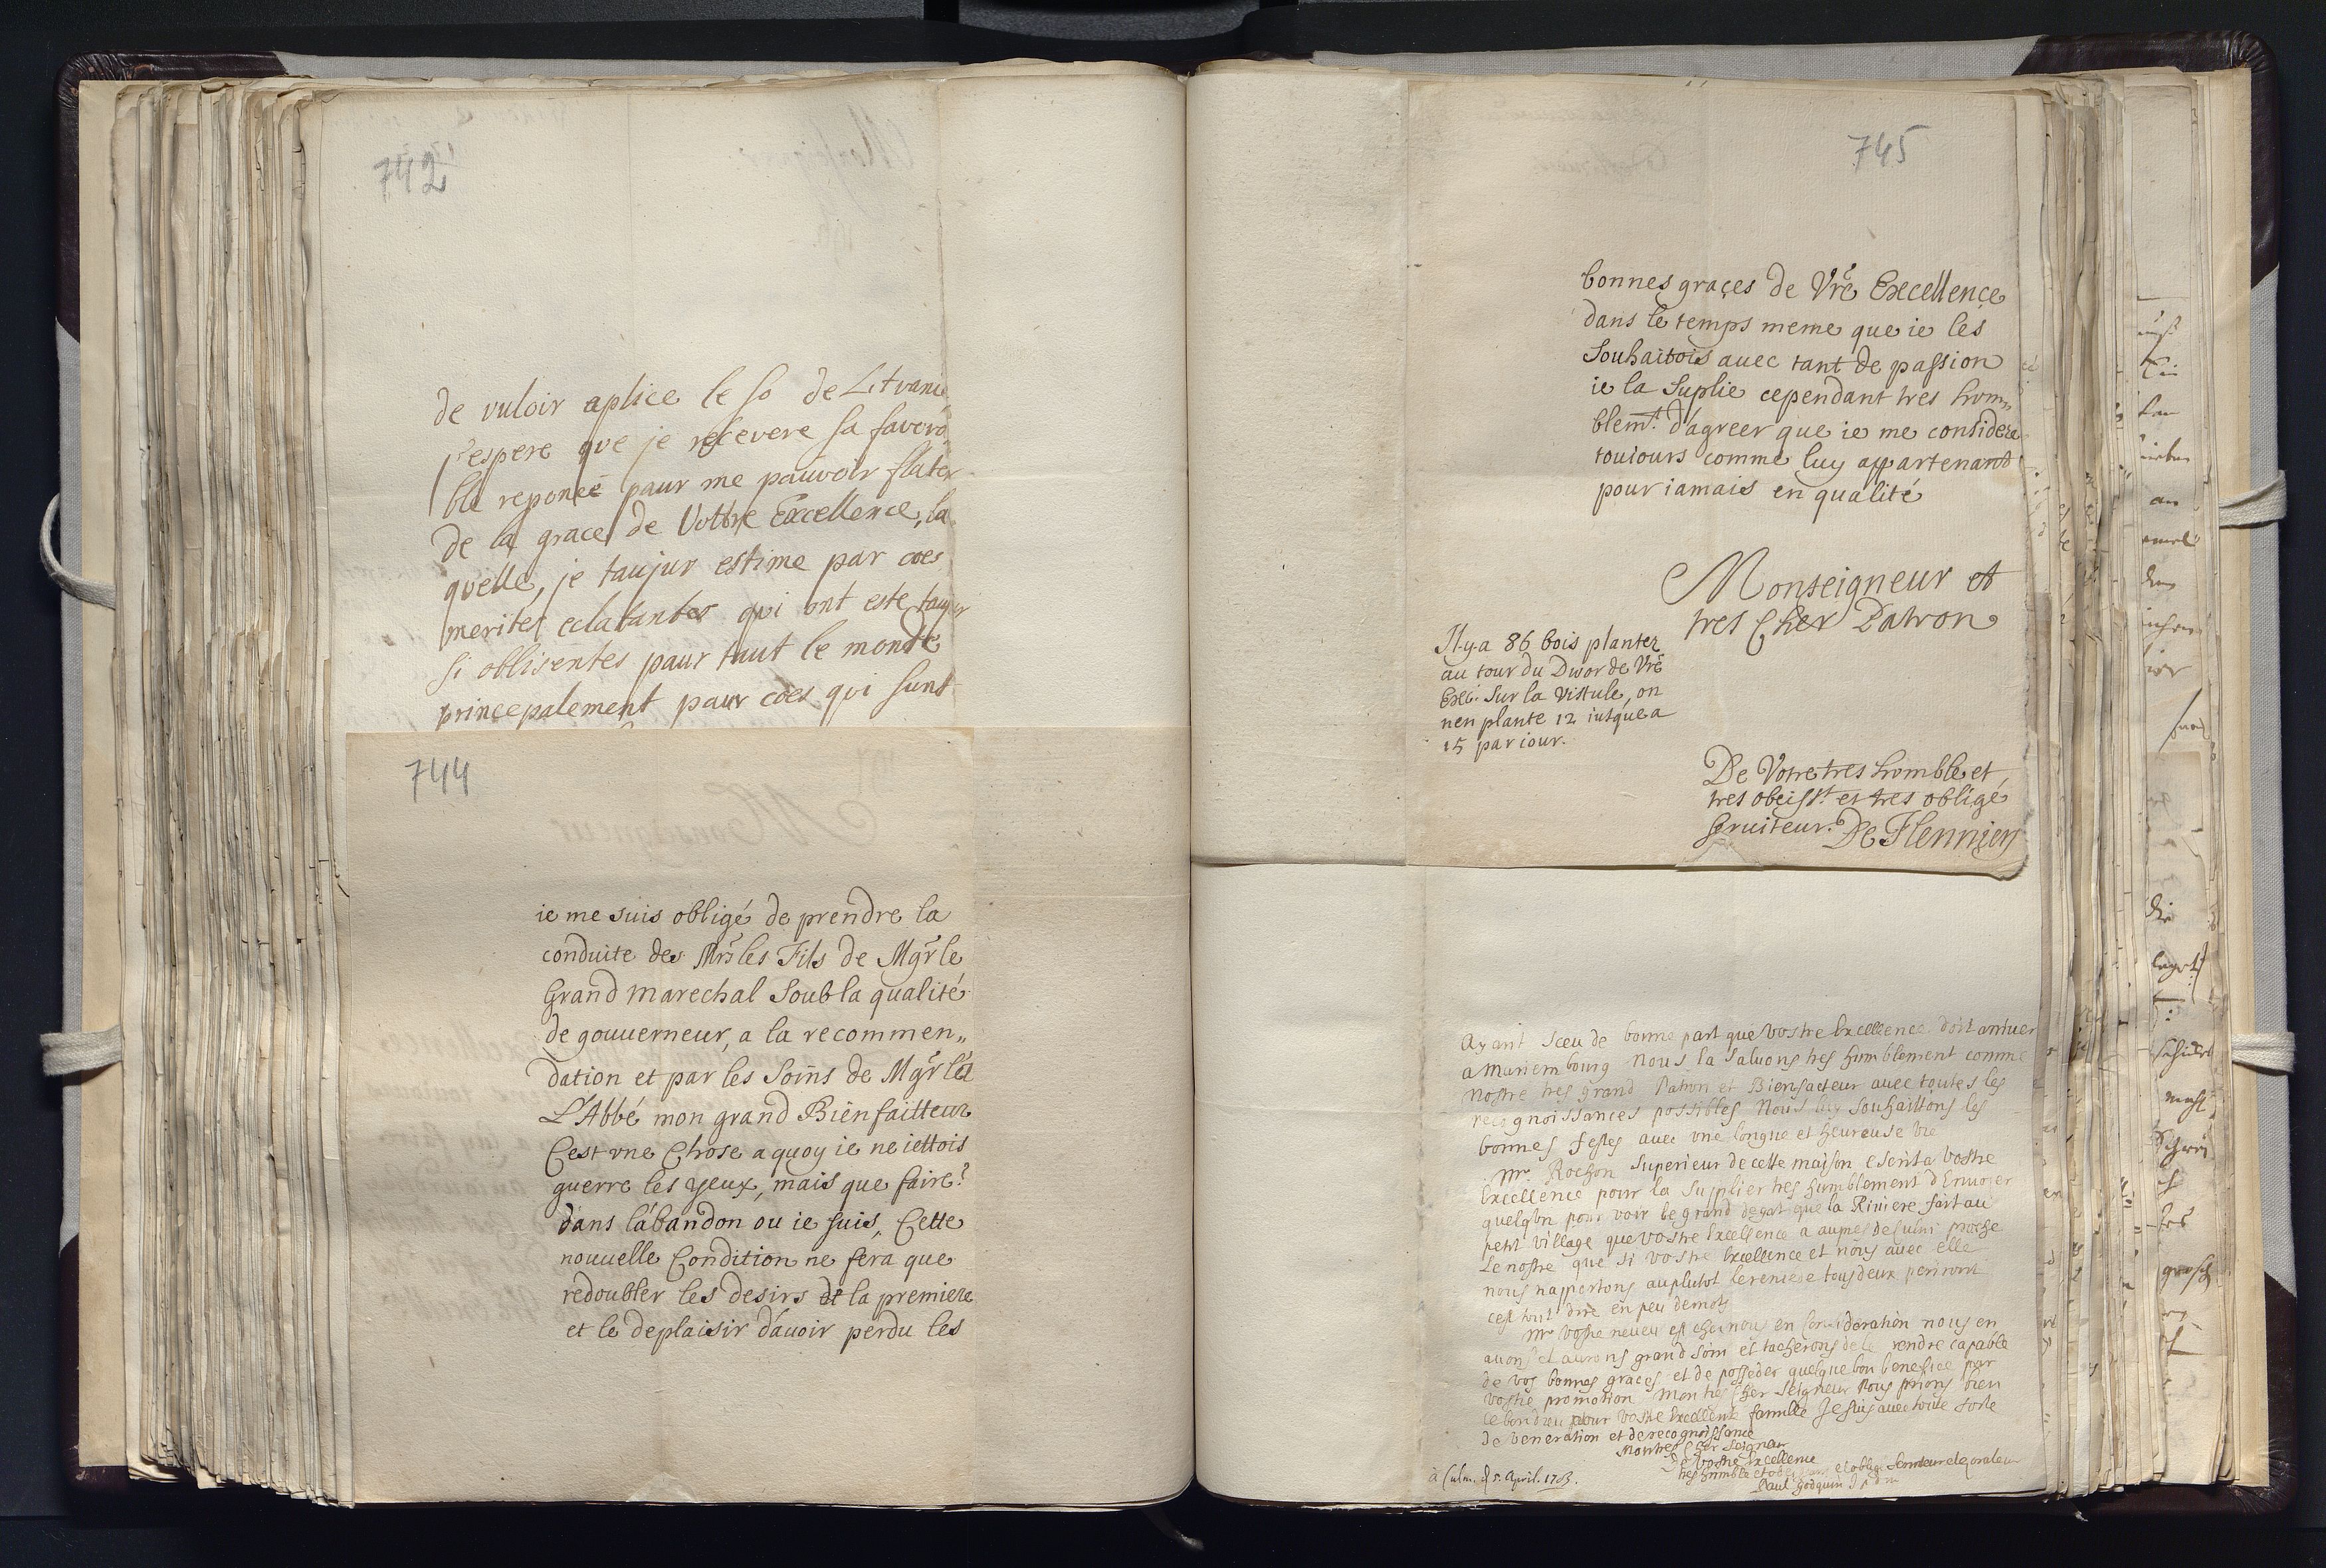 742
de vuloir aplice le so de Litvanie
j'espere que je recevere sa favora
ble reponce paur me pauvoir flater
de la grace de Vottre Excellence, la
quelle, je taujur estime par coes
merites eclatantes qui ont esté taujur
si oblisentes paur taut le monde
princepalement paur coes qui sunt
744
ie me suis obligé de prendre la
conduite des Mrs les Fils de Mgr le
Grand Marechal Soub la qualité
de gouuerneur, a la recommen„
dation et par les Soins de Mgr
L'Abbé mon grand Bienfaitteur
C'est vne Chose a quoy ie ne iettois
guerre les yeux, mais que faire?
dans l'abandon ou ie suis, Cette
nouuelle Condition ne fera que
redoubler les desirs de la premiere
et le deplaisir d'auoir perdu les
745
bonnes graçes de Vre Excellençe
dans le temps meme que ie les
Souhaitois auec tant de passion
ie la Suplie cependant tres hum„
blemt. d'agreer que ie me considere
touiours comme luy appartenant
pour iamais en qualité
Monseigneur et
tres Cher Patron
Il y a 86 bois planter
au tour du Dwor de Vre
Exc. Sur la Vistule, on
n'en plante 12 iusque a
15 par iour.
De Votre tres humble et
tres obeisst. et tres obligé
Seruiteur. De Flennien
Ayant sceu de bonne part que vostre Excellence doit arriuer
a Mariembourg nous la saluons tres humblement comme
nostre tres grand Patron et Bienfacteur auec toutes les
recognoissances possibles Nous luy souhaittons les
bonnes festes auec vne longue et heureuse vie
Mr. Rochon Superieur de cette maison escrit a vostre
Excellence pour la supplier tres humblement d'Enuoier
quelqun pour voir le grand degat que la Riuiere fait au
petit village que vostre Excellence a aupres de Culm proche
Le nostre que si vostre Excellence et nous auec elle
nous n'apportons au plutot le remede tous deux periront
cest tout dire en peu de mots
Mr vostre neueu est chez nous en consideration nous en
auons et aurons grand soin et tacherons de le rendre capable
de vos bonnes graces et de posseder quelque bon benefice par
vostre promotion Mon tres cher Seigneur Nous prions bien
le bon dieu pour vostre Excellente famille Je suis auec toute sorte
de veneration et de recognoissance
Mon tres cher Seigneur
De vostre Excellence
tres humble et et oblige Seruiteur et orateur
à Culm. d 5. April. 1703.
Paul Godquin